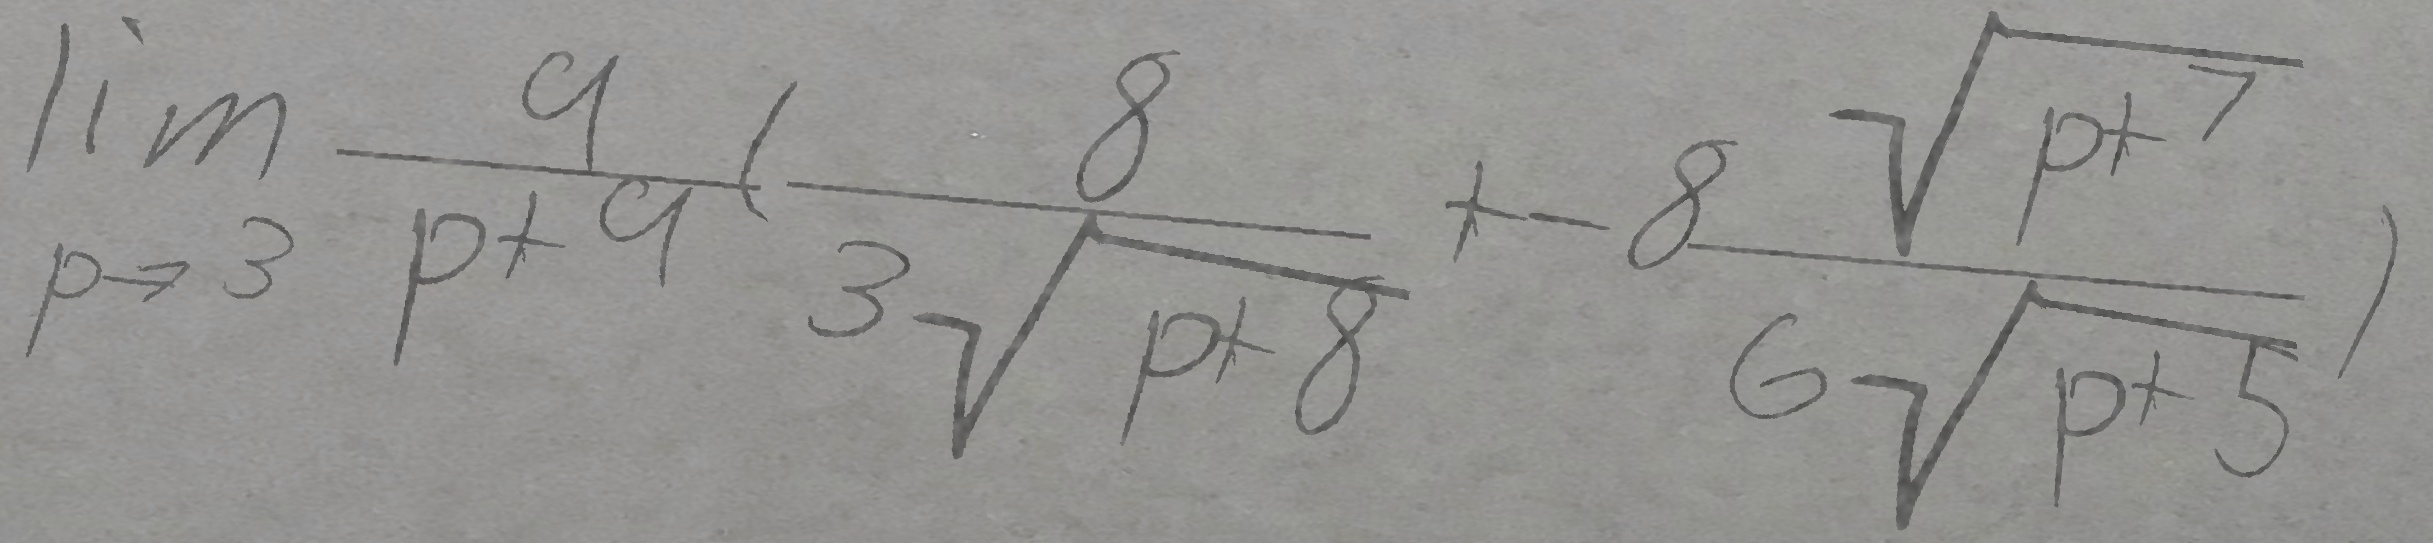 \lim_{p \to 3} \frac{9}{p+9} ( \frac{8}{3\sqrt{p+8}} + -8 \frac{\sqrt{p+7}}{6\sqrt{p+5}} )